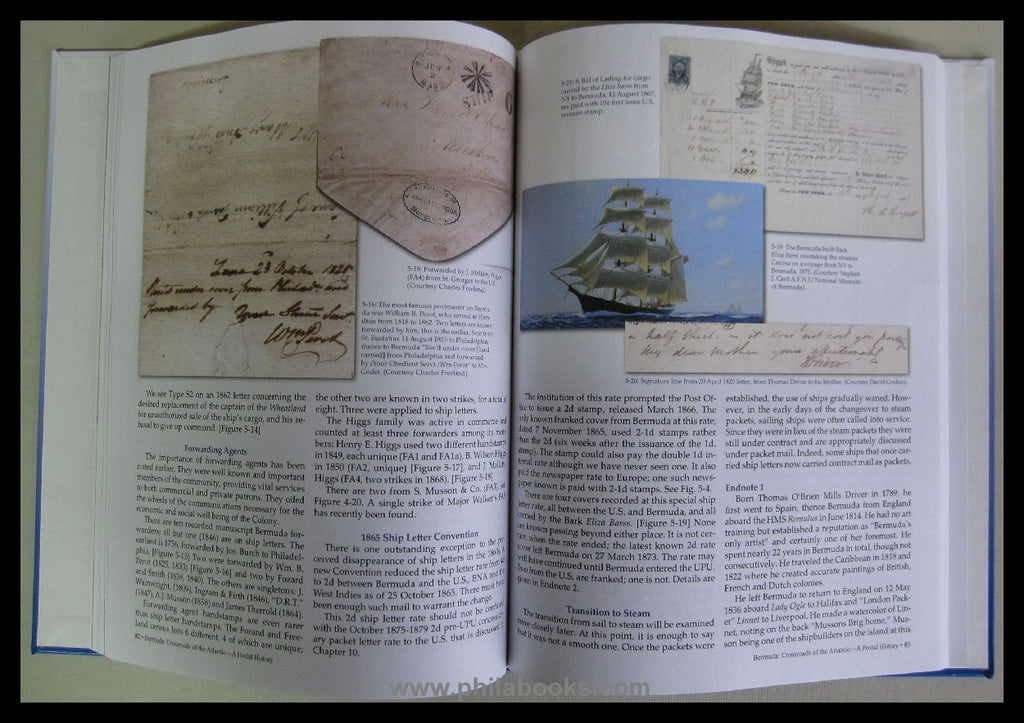 5-18: Forwarded by J. Mallory Higgs
(FA4) from St. Georges to the U.S.
(Courtesy Charles Freeland).
5-16: The most famous postmaster on Bermu-
da was William B. Perot, who served at Ham-
ilton from 1818 to 1862. Two letters are known
forwarded by him, this is the earlier. Sent from
St. Eustatius 11 August 1825 to Philadelphia,
thence to Bermuda "Rec'd under cover [and
carried] from Philadelphia and forwarded
by /Your Obedient Servt./Wm Perot" to Mrs.
Godet. (Courtesy Charles Freeland).
We see Type S2 on an 1862 letter concerning the
desired replacement of the captain of the Wheatland
for unauthorized sale of the ship's cargo, and his re-
fusal to give up command. [Figure 5-14]
Forwarding Agents
The importance of forwarding agents has been
noted earlier. They were well known and important
members of the community, providing vital services
to both commercial and private patrons. They oiled
the wheels of the communications necessary for the
economic and social well being of the Colony.
There are ten recorded manuscript Bermuda for-
warders; all but one (1846) are on ship letters. The
earliest is 1756, forwarded by Jos. Burch to Philadel-
phia. [Figure 5-15] Two were forwarded by Wm. B.
Perot (1825, 1833) [Figure 5-16] and two by Fozard
and Smith (1839, 1840). The others are singletons: J.
Wainwright, (1839), Ingram & Firth (1846), "D.R.T."
(1847), A.J. Musson (1858) and James Therrold (1864).
Forwarding agent handstamps are even rarer
than ship letter handstamps. The Forand and Free-
land census lists 6 different, 4 of which are unique;
82 • Bermuda: Crossroads of the Atlantic—A Postal History
the other two are known in two strikes, for a total of
eight. Three were applied to ship letters.
The Higgs family was active in commerce and
counted at least three forwarders among its mem-
bers: Henry E. Higgs used two different handstamps
in 1849, each unique (FA1 and FA1a), B. Wilson Higgs
in 1850 (FA2, unique) [Figure 5-17], and J. Mallory
Higgs (FA4, two strikes in 1868). [Figure 5-18]
There are two from S. Musson & Co. (FA3), see
Figure 4-20. A single strike of Major Walker's FA5
has recently been found.
1865 Ship Letter Convention
There is one outstanding exception to the per-
ceived disappearance of ship letters in the 1860s. A
new Convention reduced the ship letter rate from 4d
to 2d between Bermuda and the U.S., BNA and the
West Indies as of 25 October 1865. There must have
been enough such mail to warrant the change.
This 2d ship letter rate should not be confused
with the October 1875-1879 2d pre-UPU concession-
ary packet letter rate to the U.S. that is discussed in
Chapter 10.
5-21: A Bill of Lading for cargo
carried by the Eliza Barss from
NY to Bermuda, 12 August 1867,
tax paid with 10¢ first issue U.S.
revenue stamp.
5-19: The Bermuda-built Bark
Eliza Barss overtaking the steamer
Canima on a voyage from NY to
Bermuda, 1875. (Courtesy Stephen
J. Card A.F.N.I./National Museum
of Bermuda).
5-20: Signature line from 20 April 1820 letter, from Thomas Driver to his brother. (Courtesy David Cordon).
The institution of this rate prompted the Post Of-
fice to issue a 2d stamp, released March 1866. The
only known franked cover from Bermuda at this rate,
dated 7 November 1865, used 2-1d stamps rather
than the 2d (six weeks after the issuance of the 1d.
stamp). The stamp could also pay the double 1d in-
ternal rate although we have never seen one. It also
paid the newspaper rate to Europe; one such news-
paper known is paid with 2-1d stamps. See Fig. 5-4.
There are four covers recorded at this special ship
letter rate, all between the U.S. and Bermuda, and all
carried by the Bark Eliza Barss. [Figure 5-19] None
are known passing beyond either place. It is not cer-
tain when the rate ended; the latest known 2d rate
cover left Bermuda on 27 March 1873. The rate may
well have continued until Bermuda entered the UPU.
Two from the U.S. are franked; one is not. Details are
given in Endnote 2.
Transition to Steam
The transition from sail to steam will be examined
more closely later. At this point, it is enough to say
that it was not a smooth one. Once the packets were
established, the use of ships gradually waned. How-
ever, in the early days of the changeover to steam
packets, sailing ships were often called into service.
Since they were in lieu of the steam packets they were
still under contract and are appropriately discussed
under packet mail. Indeed, some ships that once car-
ried ship letters now carried contract mail as packets.
Endnote 1
Born Thomas O'Brien Mills Driver in 1789, he
first went to Spain, thence Bermuda from England
aboard the HMS Romulus in June 1814. He had no art
training but established a reputation as "Bermuda's
only artist" and certainly one of her foremost. He
spent nearly 22 years in Bermuda in total, though not
consecutively. He traveled the Caribbean in 1818 and
1822 where he created accurate paintings of British,
French and Dutch colonies.
He left Bermuda to return to England on 12 May
1836 aboard Lady Ogle to Halifax and "London Pack-
et" Linnet to Liverpool. He made a watercolor of Lin-
net, noting on the back "Mussons Brig home," Mus-
son being one of the shipbuilders on the island at this
Bermuda: Crossroads of the Atlantic—A Postal History • 83
www.philabooks.com